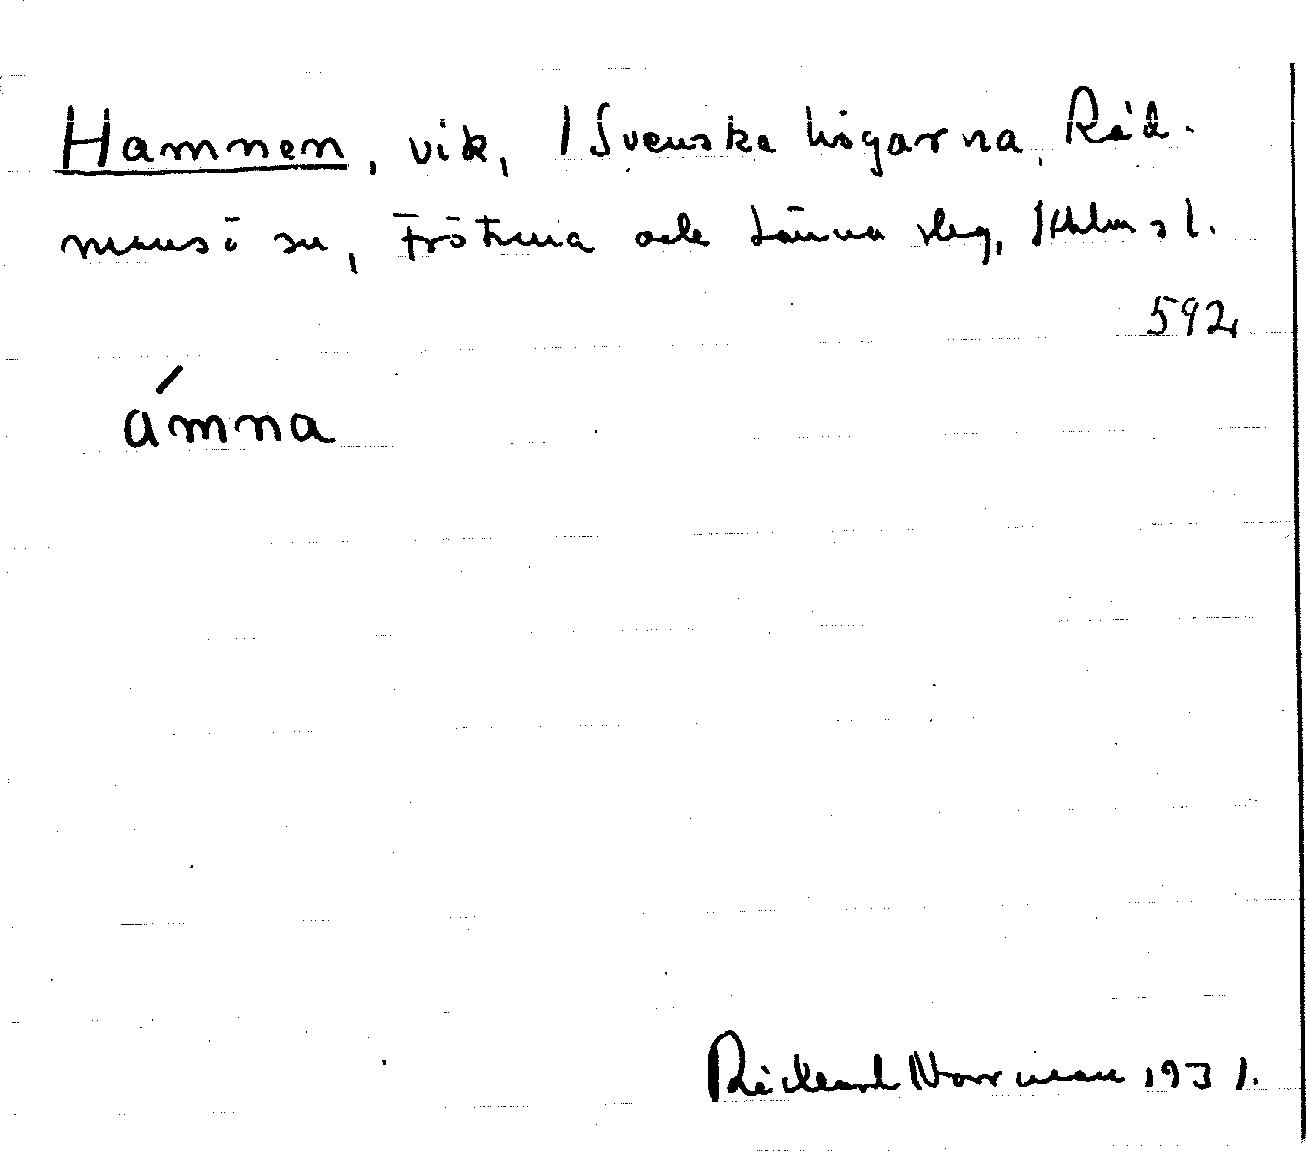 Hamnen, vik, 1 Svenska högarna, Råd-
mansö sn, Frötuna och Länna slg, Sthlms l.
592
ámna
Rickard Norrman 1931.